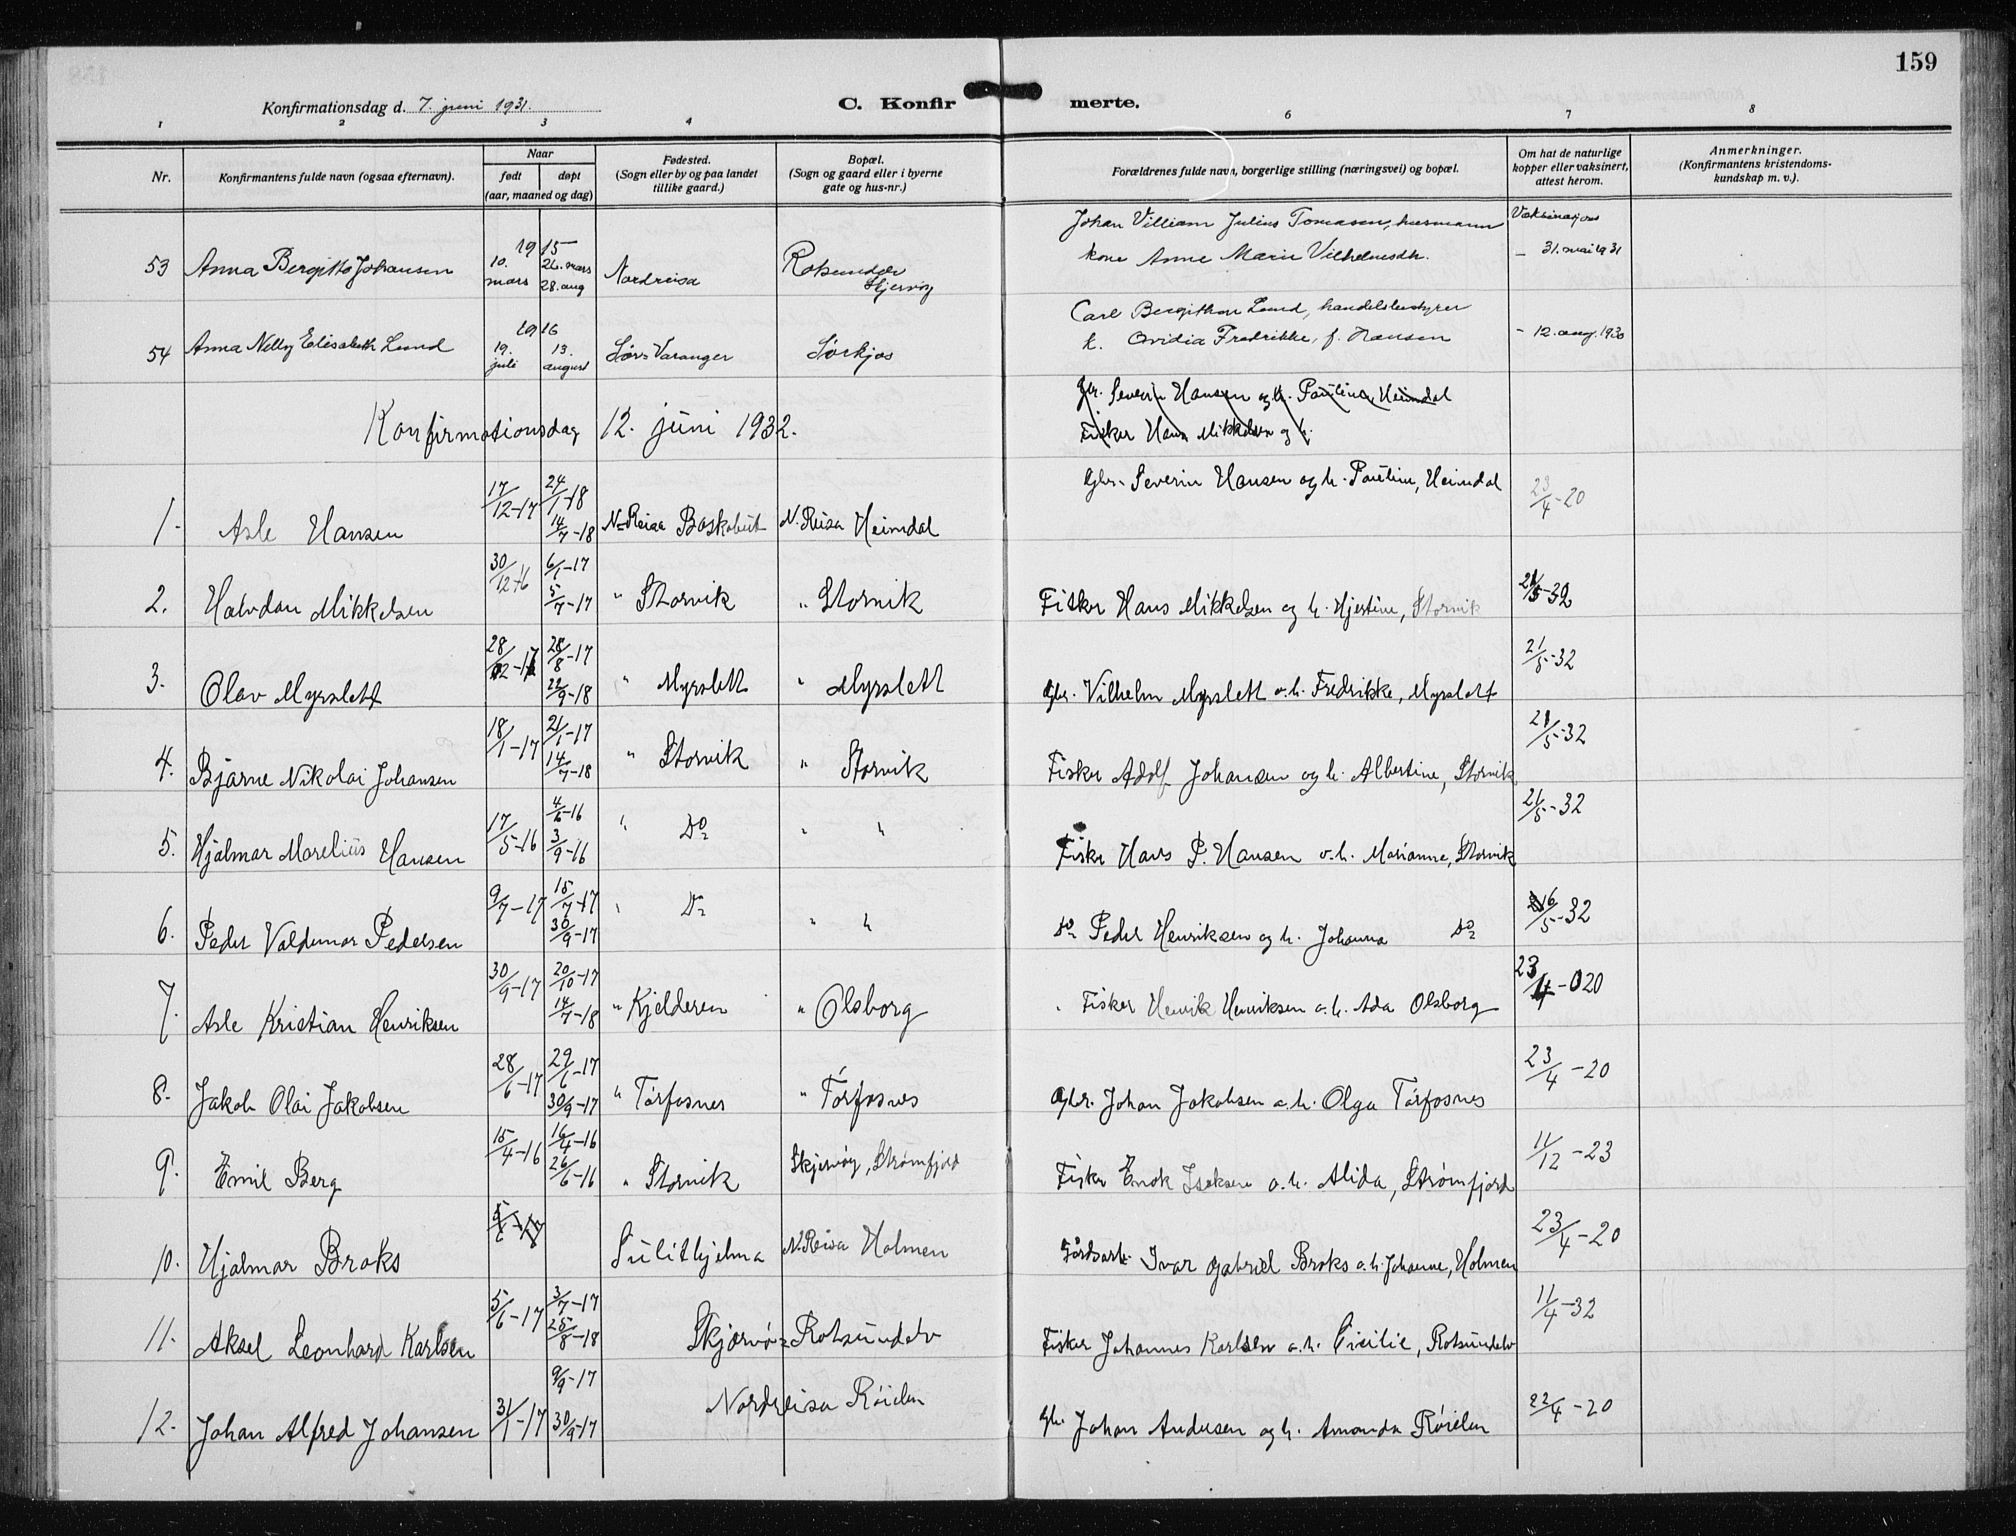 159
Konfirmationsdag d. 7. juni 1931.
C. Konfirmerte.
1 2 3 4 6 7 8
Nr.
Konfirmantens fulde navn (ogsaa efternavn).
Naar
født døpt
(aar, maaned og dag)
Fødested.
(Sogn eller by og paa landet
tillike gaard.)
Bopæl.
(Sogn og gaard eller i byerne
gate og hus-nr.)
Forældrenes fulde navn, borgerlige stilling (næringsvei) og bopæl.
Om hat de naturlige
kopper eller vaksinert,
attest herom.
Anmerkninger.
(Konfirmantens kristendoms-
kundskap m. v.).
Johan Villiam Julius Tomasen, husmann Vaksinasjon
53 Anna Bergitte Johansen 1915 10. mars 26. mars 28. aug Nordreisa Rotsundelv Skjervøy kone Anne Marie Vilhelmsdtr. – 31. mai 1931
Carl Bergithon Lund, handelsbestyrer
54 Anna Nelly Elisabeth Lund 1916 19. juli 13. august Sør-Varanger Sørkjos k. Ovidia Fredrikke, f. Hansen – 12. aug. 1930
Gbr. Severin Hansen og h. Pauline, Heimdal
Fisker Hans Mikkelsen og h.
Konfirmationsdag 12. juni 1932.
1. Asle Hansen 17/12-17 24/1-18 14/7-18 N-Reisa Baskabut N. Reisa Heimdal Gbr. Severin Hansen og h. Pauline, Heimdal 23/4-20
2. Halvdan Mikkelsen 30/12-16 6/1-17 5/7-17 " Storvik " Storvik Fisker Hans Mikkelsen og h. Hjertine, Storvik 21/5-32
3. Olav Myrslett 28/12-17 28/8-17 22/9-18 " Myrslett " Myrslett Gbr. Vilhelm Myrslett o.h. Fredrikke, Myrslett 21/5-32
4. Bjarne Nikolai Johansen 18/1-17 21/1-17 14/7-18 " Storvik " Storvik Fisker Adolf Johansen og h. Albertine, Storvik 21/5-32
5. Hjalmar Marelius Hansen 17/5-16 4/6-16 3/9-16 " Do " " Fisker Hans P. Hansen o.h. Marianne, Storvik 21/5-32
6. Peder Valdemar Pedersen 9/7-17 15/7-17 30/9-17 " Do " " Do Peder Henriksen og h. Johanna Do 16/5-32
7. Asle Kristian Henriksen 30/9-17 20/10-17 14/7-18 " Kjelderen " Olsborg Fisker Henrik Henriksen o.h. Ada Olsborg 23/4-20
8. Jakob Olai Jakobsen 28/6-17 29/6-17 30/9-17 " Tørfosnes " Tørfosnes Gbr. Johan Jakobsen o.h. Olga Tørfosnes 23/4-20
9. Emil Berg 15/4-16 16/4-16 26/6-16 " Storvik Skjervøy, Strømfjord Fisker Enok Isaksen o.h. Alida, Strømfjord 11/12-23
10. Hjalmar Braks Sulithjelma N. Reisa Holmen Gårdsarb. Ivar Gabriel Braks o.h. Johanne, Holmen 23/4-20
11. Aksel Leonhard Karlsen 5/6-17 3/7-17 25/8-18 Skjervø= Rotsundelv Fisker Johannes Karlsen o.h. Cicilie, Rotsundelv 11/4-32
12. Johan Alfred Johansen 31/1-17 9/9-17 30/9-17 Nordreisa Røielen Gbr. Johan Andersen og h. Amanda Røielen 22/4-20